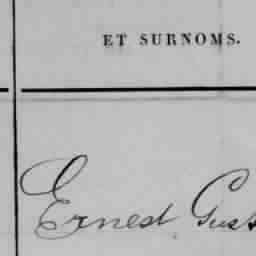 ET SURNOMS.
Ernest Gust